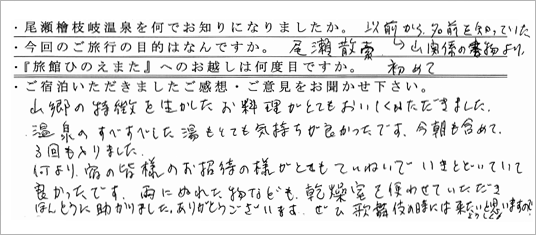 ・尾瀬檜枝岐温泉を何でお知りになりましたか。 以前から名前を知っていた
・今回のご旅行の目的はなんですか。 尾瀬散索 ↳山関係の書物より
・『旅館ひのえまた』へのお越しは何度目ですか。 初めて
・ご宿泊いただきましたご感想・ご意見をお聞かせ下さい。
山郷の特徴を生かしたお料理がとてもおいしくいただきました。
温泉のすべすべした湯もとても気持ちが良かったです。今朝も含めて、
3回も入りました。
何より、宿の皆様のお招待の様がとてもていねいでいきとどいていて
良かったです。雨にぬれた物なども、乾燥室を使わせていただき
ほんとうに助かりました。ありがとうございます。ぜひ歌舞伎の時には来たいと思いますので